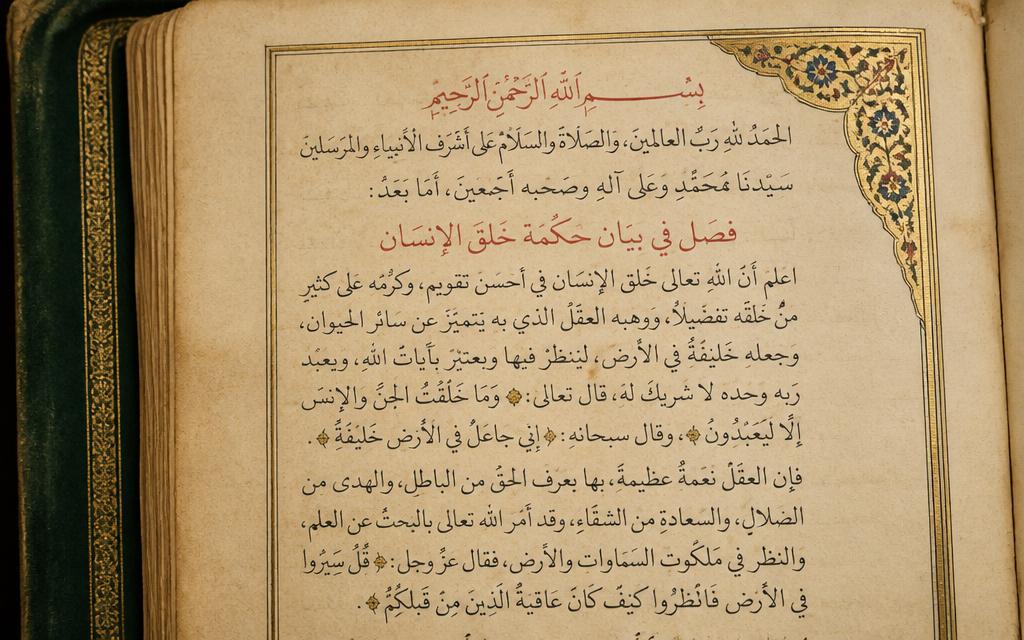 بِسْمِ اللَّهِ الرَّحْمَٰنِ الرَّحِيمِ
الحَمَدُ للهِ رَبُّ العالمينَ، وَالصَلَاةَ والسَلَامُ عَلى أَشَرَف الأَنبياءِ والمَرَسَلينَ
سَيْدنَا مُحَمَّدٍ وَعَلى آلهِ وصَحبه أَجَمعينَ، أَمَا بَعَدُ:
فصَل في بيَان حكُمَة خَلقَ الإنسَان
اعلم أَنَ اللهِ تعالى خَلق الإنسَان في أحسَن تقويم، وكرمُّه عَلى كثيرٍ
منُّ خَلقَه تفضَيلاُ، ووهبه العقَلُ الذي به يَتميَزَ عن سائر الحيوان،
وَجعلهِ خَليَفَةُ في الأَرض، ليَنظرْ فيها وبعتيْرَ بآَياتُ الله، ويعبُد
رَبه وحده لا شريكَ لهَ، قال تعالى: وَمَا خَلَقُتُ الجنَّ والإنسَ
إلَّا ليَعَبُدُونُ، وقال سبحانهِ: إني جاعَلُ في الأَرض خَليَفَةً.
فإن العقَلَ نعَمةُ عظيمةَ، بها بعرف الحقُ من الباطلِ، والهدى من
الضلالِ، والسعادةِ من الشقَاءِ، وقد أمَر الله تعالى بالبحثَ عن العلم،
والنظر في مَلكُوت السَمَاوات والأَرض، فقال عزَّ وجل: قُلُ سَيِرُوا
في الأَرْض فَانْظرُوا كَيَفَ كَانَ عَاقيةُ الَذِينَ مِنَ قَبلكُمُ.